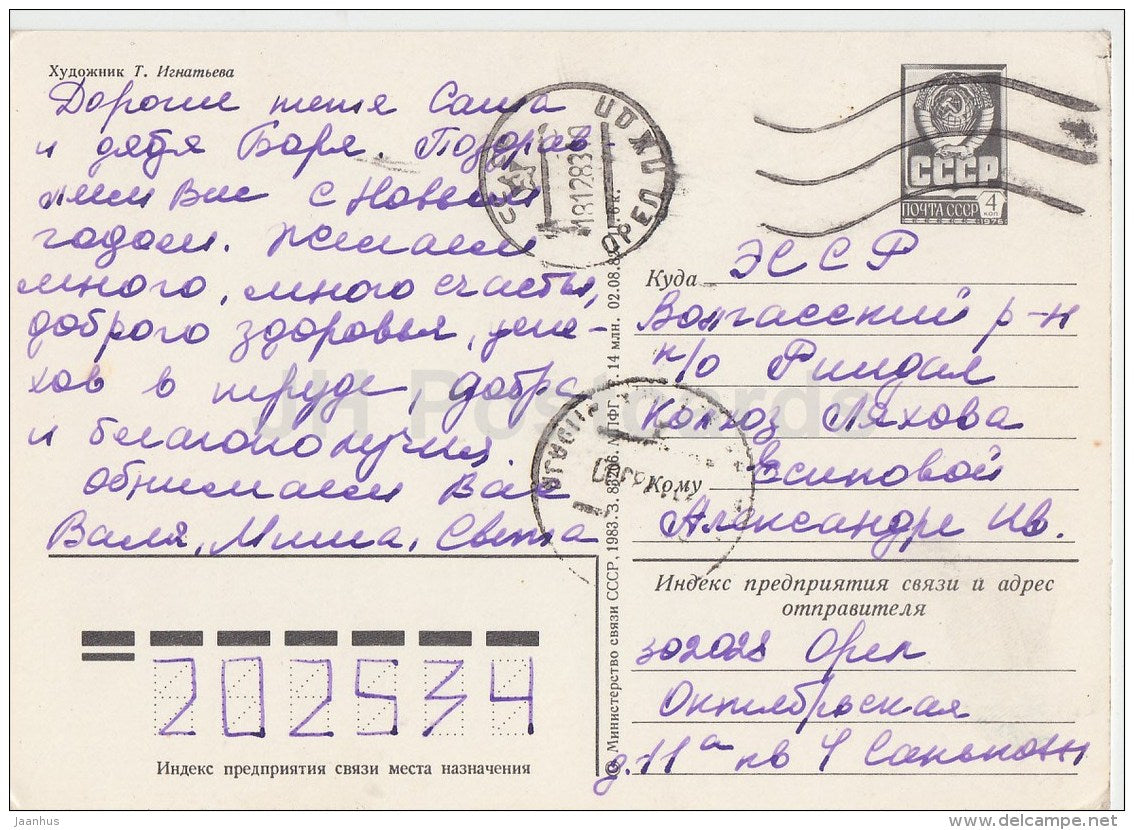 Художник Т. Игнатьева
Дорогие тетя Саша
и дядя Боря. Поздрав-
ляем Вас с Новым
годом. Желаем
много, много счастья,
доброго здоровья, успе-
хов в труде, добра
и благополучия.
Обнимаем Вас
Валя, Миша, Света
СССР
ПОЧТА СССР
4
КОП
1976
ОРЕЛ ПЖДП
18128300
Куда ЭССР
р-н
п/о
Колхоз Ляхова
Кому Осиповой
Александре Ив.
Индекс предприятия связи и адрес
отправителя
302028 Орел
Октябрьская
д. 11а кв 4
202534
Индекс предприятия связи места назначения
© Министерство связи СССР, 1983. З. 83206. МПФГ. 14 млн. 02.08.82. 6 к.
JH Postcards
Jaanhus
www.delcampe.net